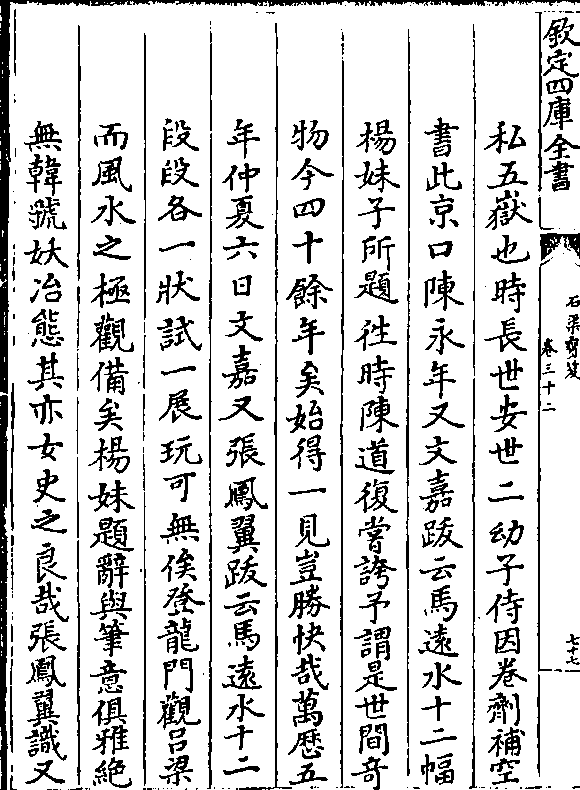 欽定四庫全書
石渠寶笈
卷三十二
七十七
私五嶽也時長世安世二幼子侍因卷劑補空
書此京口陳永年又文嘉跋云馬遠水十二幅
楊妹子所題徃時陳道復嘗誇予謂是世間竒
物今四十餘年矣始得一見豈勝快哉萬厯五
年仲夏六日文嘉又張鳳翼跋云馬遠水十二
段段各一狀試一展玩可無俟登龍門觀吕梁
而風水之極觀備矣楊妹題辭與筆意俱雅絶
無韓虢妖冶態其亦女史之良哉張鳳翼識又